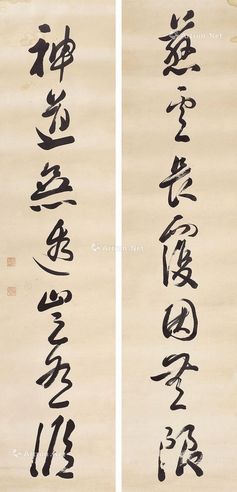 慈雲長覆因無限
神道無豈
Artron.Net